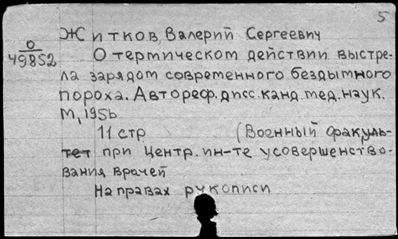 5
Житков, Валерий Сергеевич
О
49852
О термическом действии выстре-
ла зарядом современного бездымного
пороха. Автореф. дисс. канд. мед. наук.
М, 1956
11 стр (Военный факуль-
тет при Центр. ин-те усовершенство-
вания врачей
На правах рукописи